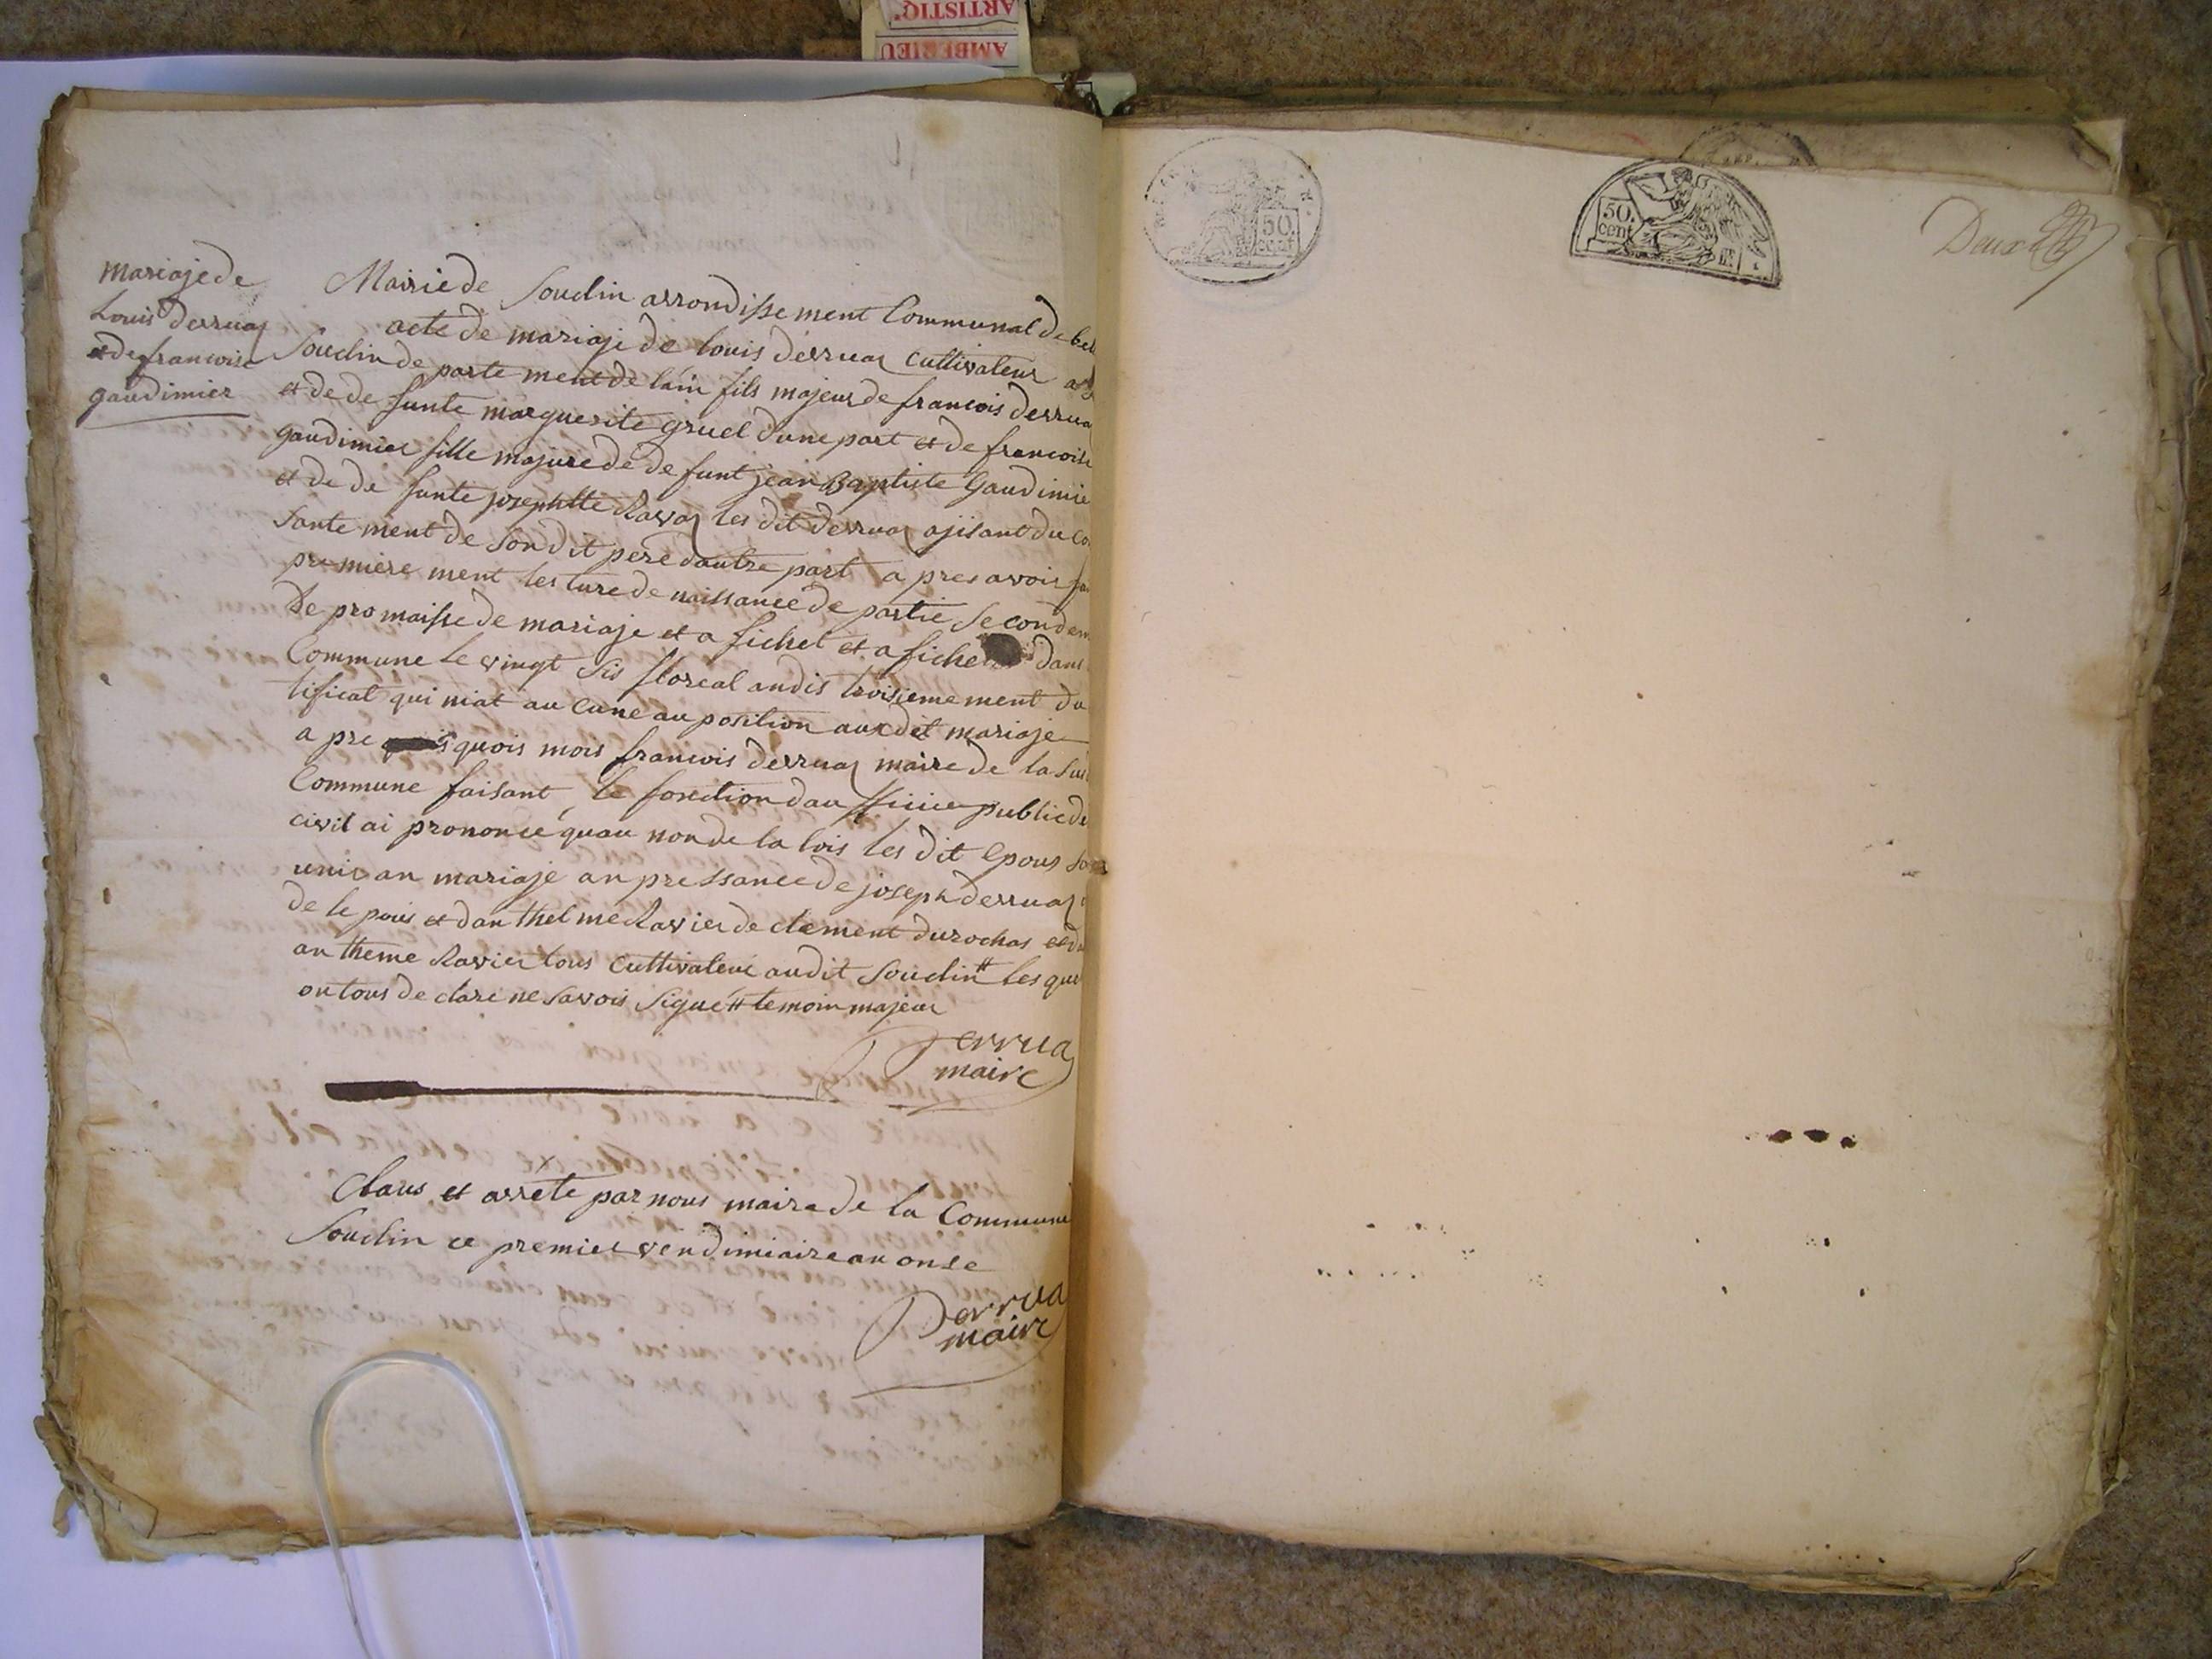 ARTISTIQ.
AMBERIEU
mariaje de
Louis derruaz
et de francoise
gaudimier
Mairie de Souclin arrondissement Communal de bel
acte de mariaje de louis derruaz cultivateur a
Souclin de parte ment de lain fils majeur de francois derrua
et de de funte marguerite gruel dune part et de francoise
gaudimier fille majure de de funt jean Baptiste Gaudimie
et de de funte josephtte Ravaz les dit derruaz ajisant du co
sante ment de son dit pere dautre part a pres avoir fai
premiere ment lesture de naissance de partie secondem
de promaisse de mariaje et a fichet et a fiche dans
Commune le vingt sis floreal an dis troisieme ment du
tificat qui niat au cune au position aux dit mariaje
a pre quois mois francois derruaz maire de la sus
Commune faisant le fonction dau fficier public de
civil ai prononcé quau non de la lois les dit Epous so
unis an mariaje an pressance de joseph derruaz
de le pais et dan thel me Ravier de clement durochas et d
an theme Ravier tous cultivateur audit Souclin # les que
on tous de clare ne savois signé # temoin majeur
Derrua
maire
Claus et arrete par nous maire de la Commune
Souclin ce premier vendimiaire an onse
Derrua
maire
50.
cent
50.
cent
Deux